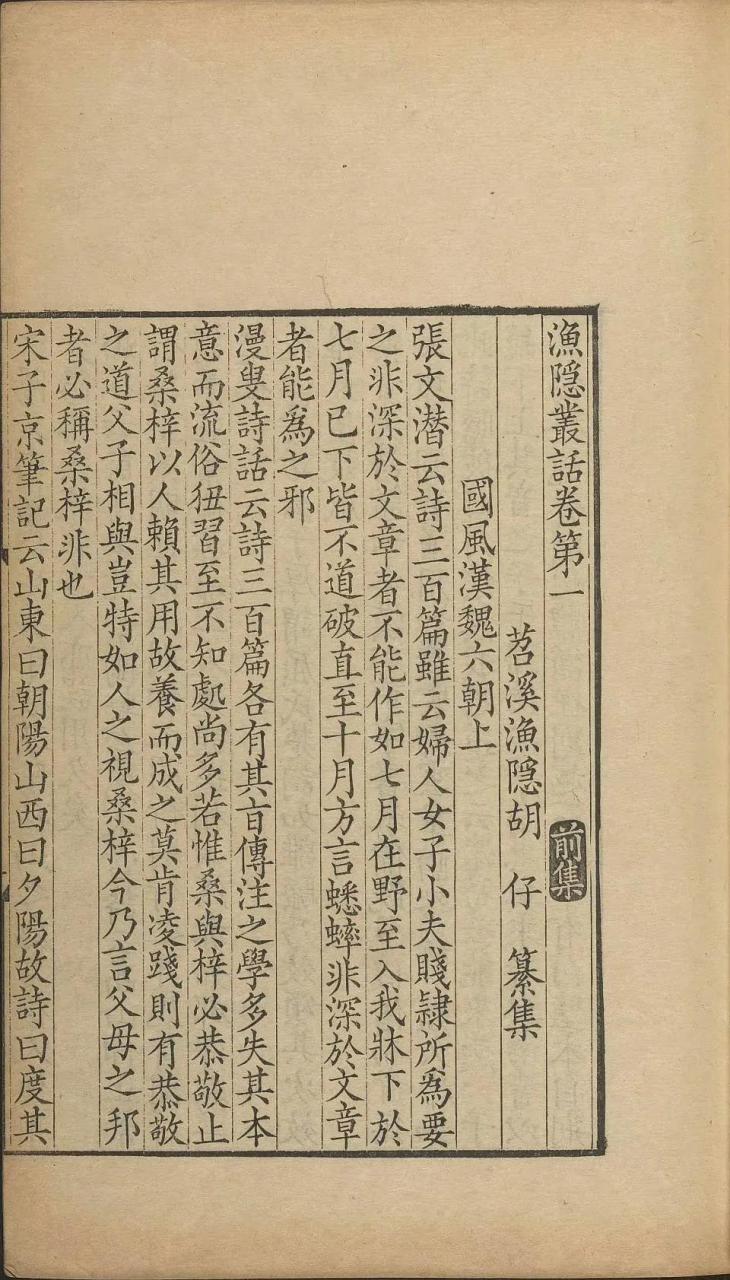 漁隠叢話卷第一 前集
苕溪漁隠胡 仔 纂集
國風漢魏六朝上
張文潜云詩三百篇雖云婦人女子小夫賤隷所爲要
之非深於文章者不能作如七月在野至入我牀下於
七月已下皆不道破直至十月方言蟋蟀非深於文章
者能爲之邪
漫叟詩話云詩三百篇各有其㫖傳注之學多失其本
意而流俗狃習至不知處尚多若惟桑與梓必恭敬止
謂桑梓以人賴其用故養而成之莫肯凌踐則有恭敬
之道父子相與豈特如人之視桑梓今乃言父母之邦
者必稱桑梓非也
宋子京筆記云山東曰朝陽山西曰夕陽故詩曰度其